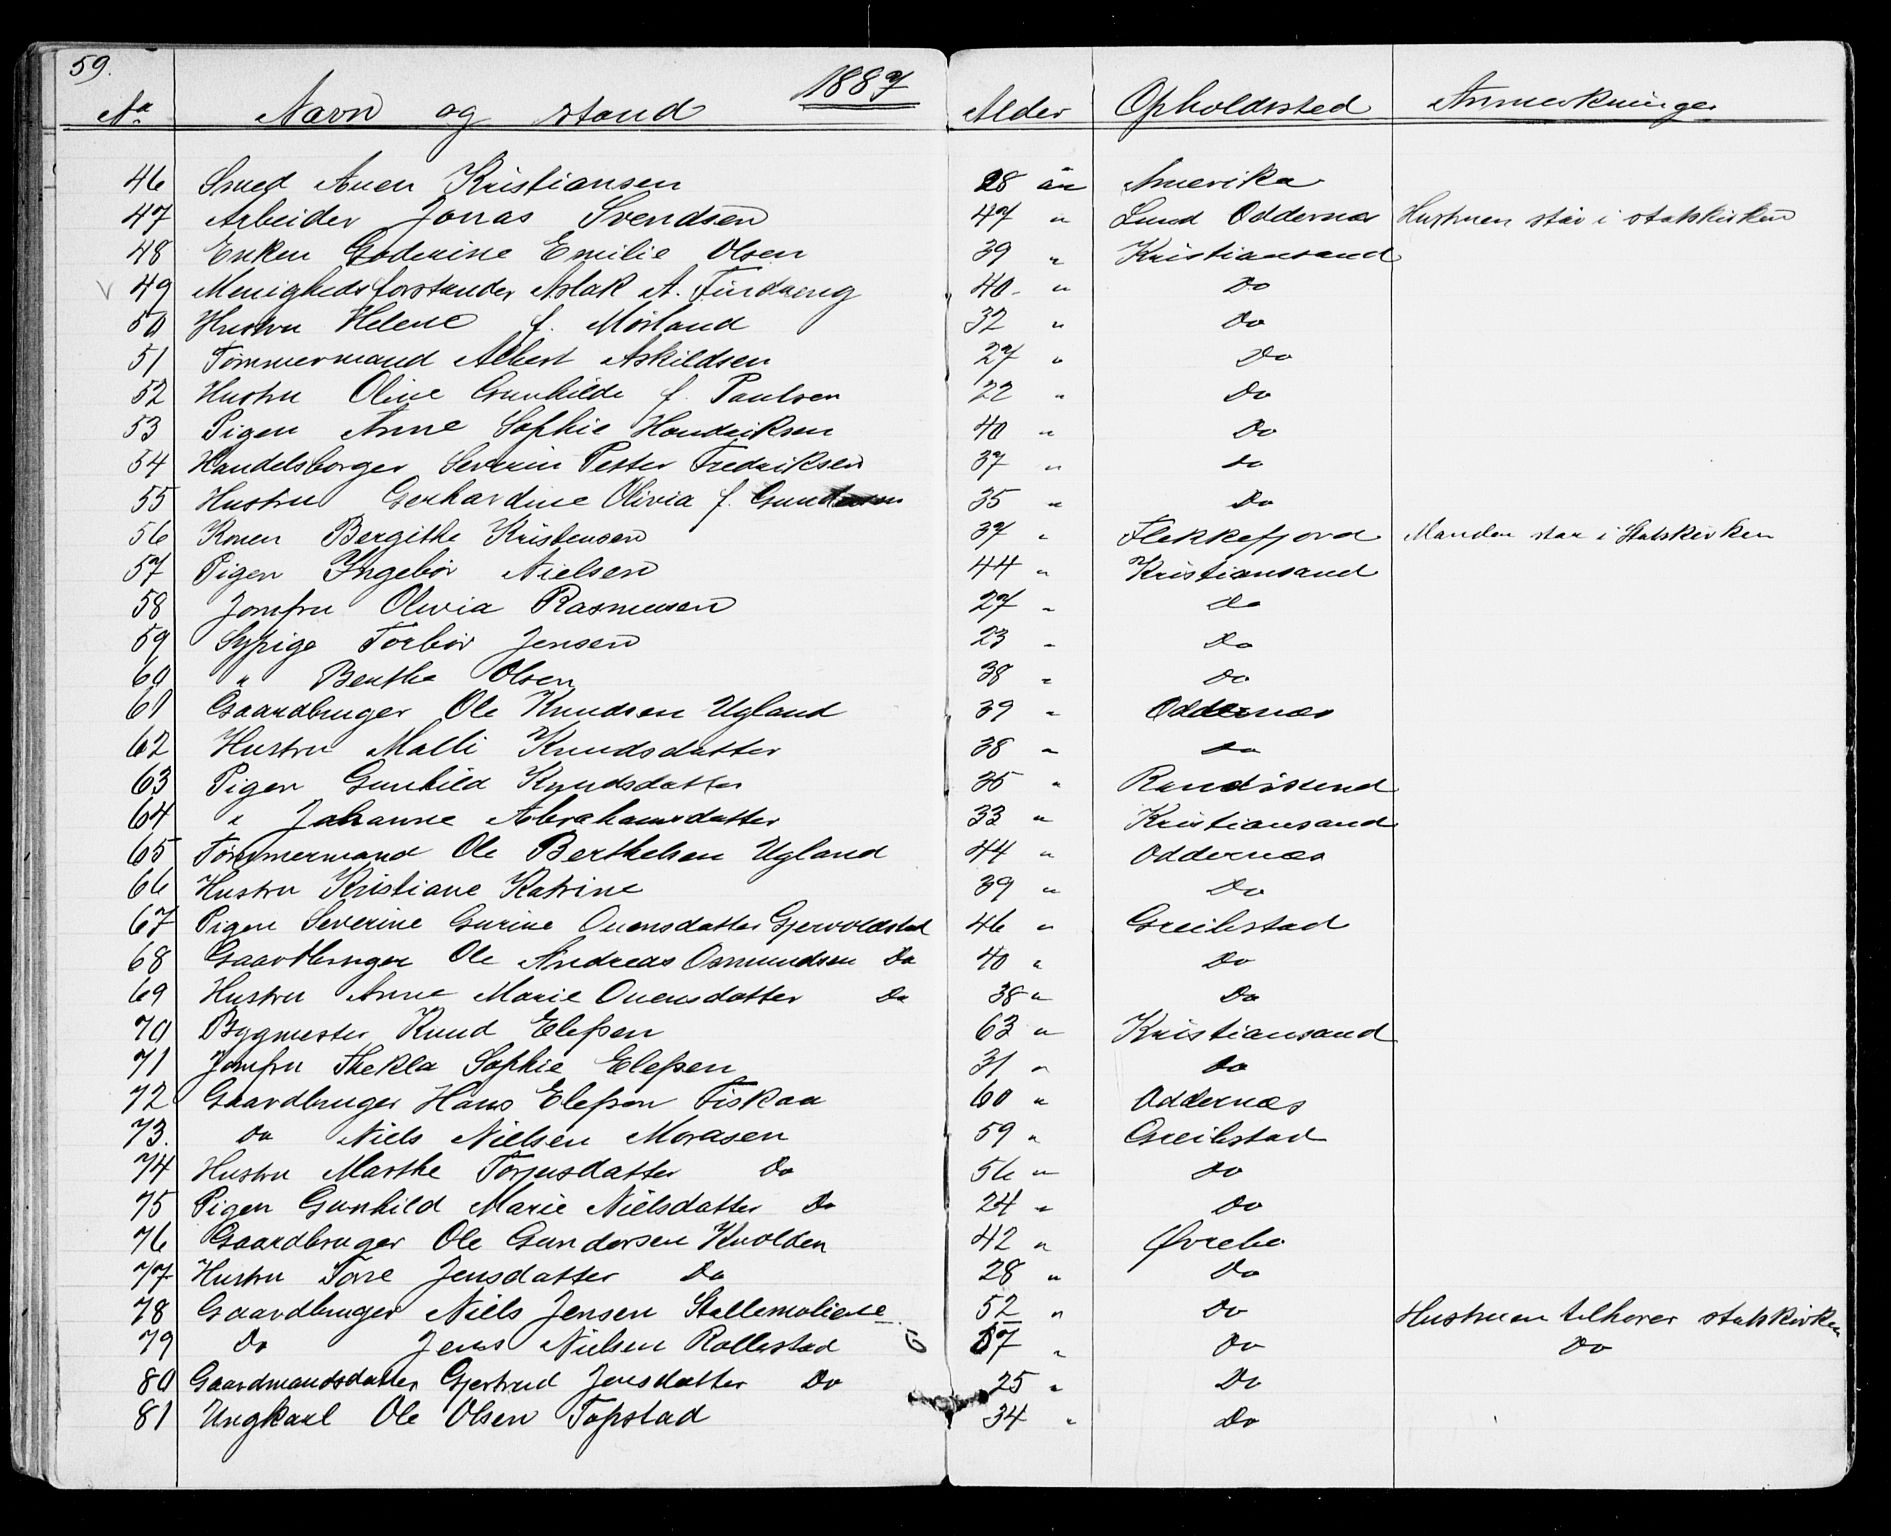 59.
No Navn og stand 1887 Alder Opholdssted Anmerkninger
46 Smed Auen Kristiansen 28 år Amerika
47 Arbeider Jonas Svendsen 47 " Lund Oddernæs Hustruen står i statskirken
48 Enken Goderine Emilie Olsen 39 " Kristiansand
49 Menighedsforstander Aslak A. 40 " Do
50 Hustru Helene f. Mørland 32 " Do
51 Tømmermand Albert Askildsen 27 " Do
52 Hustru Oline Gunhilde f. Paulsen 22 " Do
53 Pigen Anne Sophie Hendriksen 40 " Do
54 Handelsborger Severin Petter Fredriksen 37 " do
55 Hustru Gerhardine Olivia f. Gundersen 35 " Do
56 Konen Bergithe Kristensen 37 " Flekkefjord Manden star i Statskirken
57 Pigen Ingebør Nielsen 44 " Kristiansand
58 Jomfru Olivia Rasmusen 27 " Do
59 Sypige Torbør Jensen 23 " Do
60 " Berthe Olsen 38 " Do
61 Gaardbruger Ole Knudsen Ugland 39 " Oddernæs
62 Hustru Malli Knudsdatter 38 " do
63 Pigen Gunhild Knudsdatter 35 " Randøsund
64 " Johanne Abrahamsdatter 33 " Kristiansand
65 Tømmermand Ole Berthelsen Ugland 44 " Oddernæs
66 Hustru Kristiane Katrine 39 " Do
67 Pigen Severine Gurine Ouensdatter Gjervoldstad 46 " Greibstad
68 Gaardbruger Ole Andreas Osmundsen Do 40 " Do
69 Hustru Anne Marie Ouensdatter Do 38 " Do
70 Bygmester Knud Elefsen 63 " Kristiansand
71 Jomfru Thekla Sophie Elefsen 31 " do
72 Gaardbruger Hans Elefsen Fiskaa 60 " Oddernæs
73. Do Niels Nielsen Moraasen 59 " Greibstad
74 Hustru Marthe Torjusdatter Do 56 " do
75 Pigen Gunhild Marie Nielsdatter Do 24 " Do
76 Gaardbruger Ole Gundersen Knolden 42 " Øvrebo
77 Hustru Torre Jensdatter Do 28 " Do
78 Gaardbruger Niels Jensen Stallemoliene 52 " Do Hustruen tilhører statskirken
79 Do Jens Nielsen Rollestad 57 " Do Do
80 Gaardmandsdatter Gjertrud Jensdatter Do 25 " Do
81 Ungkarl Ole Olsen Topstad 34 " Do